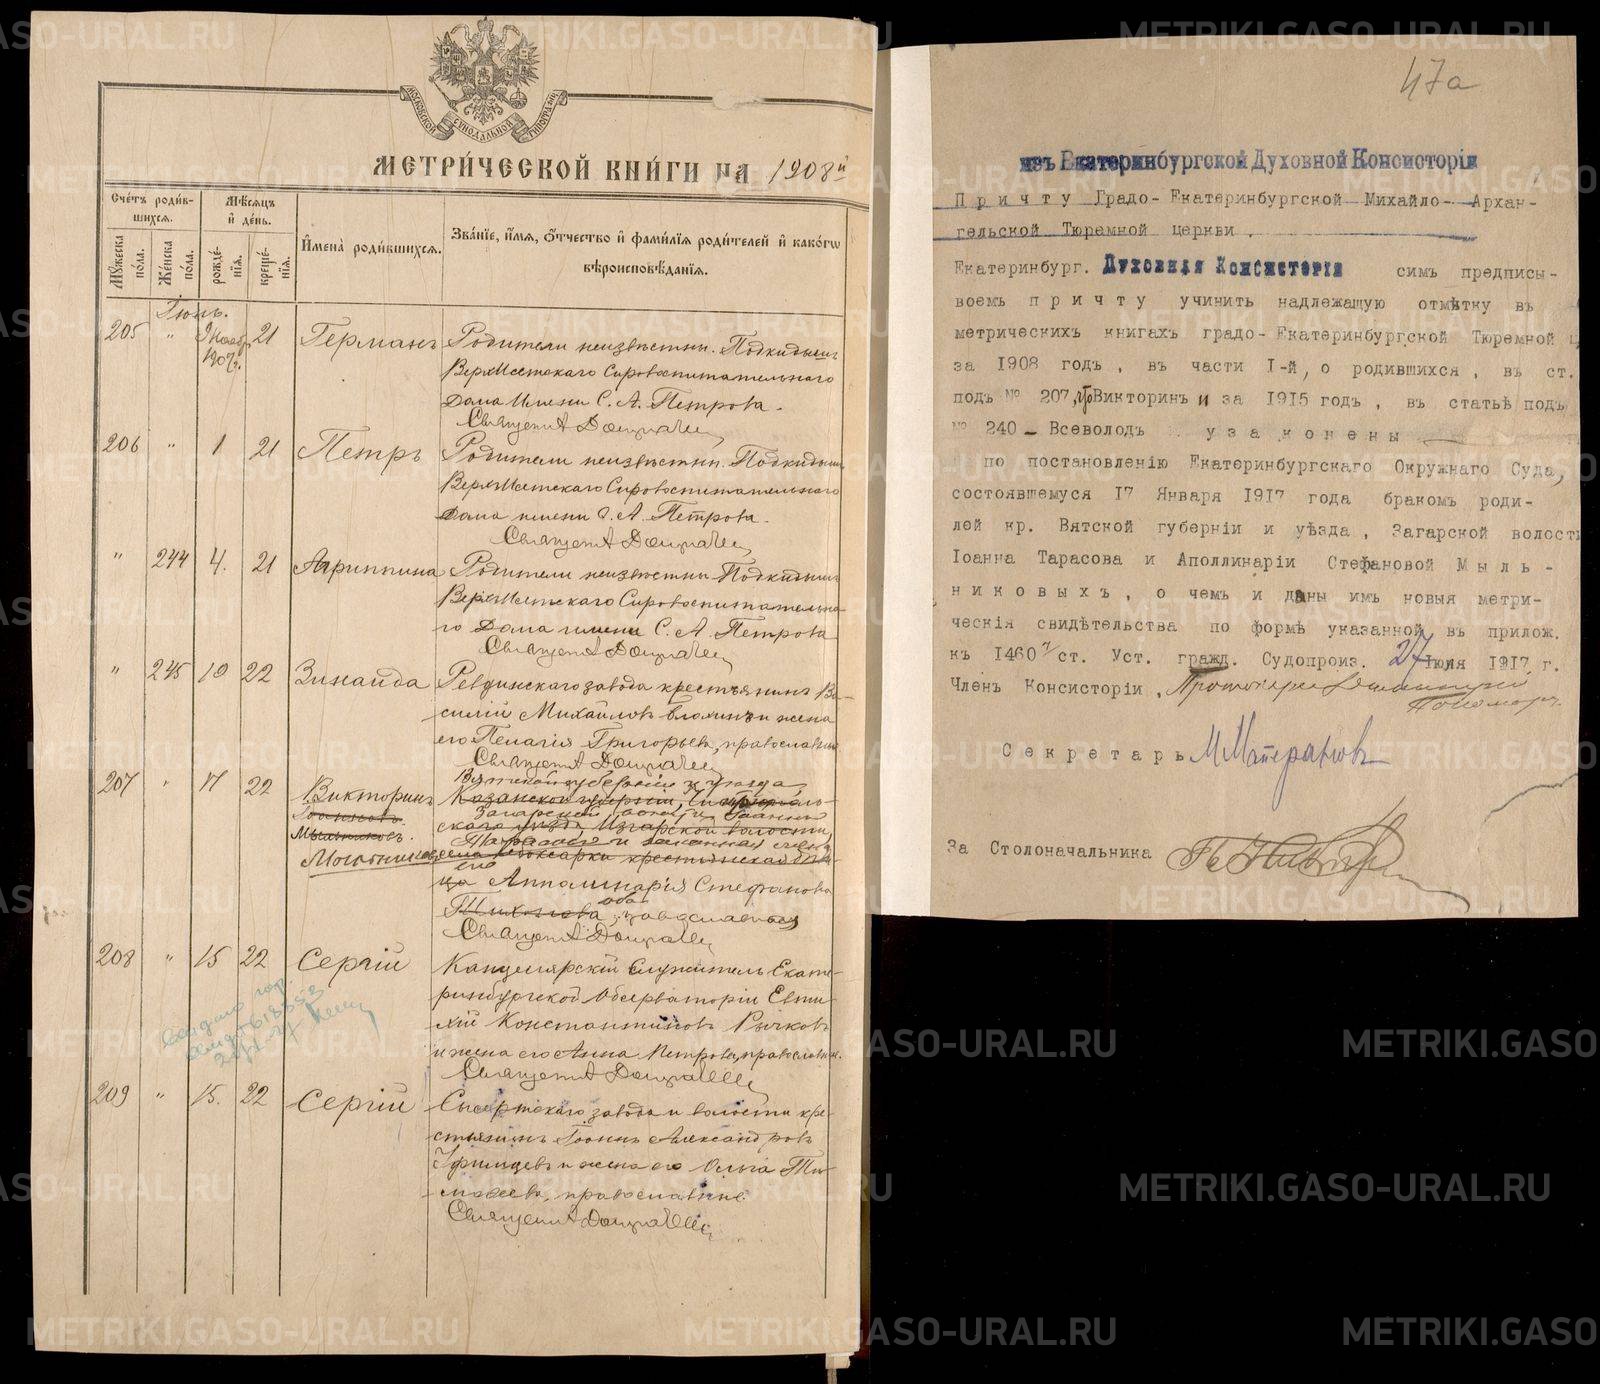 МОСКОВСКОЙ СѴНОДАЛЬНОЙ ТИПОГРАФІИ
МЕТРИ́ЧЕСКОЙ КНИ́ГИ НА 1908й
Сче́тъ роди́в-
шихся.
Мѣ́сяцъ
и҆ де́нь.
И҆мена̀ роди́вшихся.
Зва́нїе, и҆́мя, ѻ҆́тчество и҆ фами́лїя роди́телей и҆ како́гѡ
вѣроисповѣ́данїя.
Мꙋ́жеска по́ла.
Же́нска по́ла.
рожде́-нїя.
креще́-нїя.
Іюнь.
205 " 9 Ноябр. 1907г. 21 Германъ Родители неизвѣстны. Подкидышъ
Верхъ-Исетскаго Сировоспитательнаго
дома имени С. А. Петрова.
Священ
206 " 1 21 Петръ Родители неизвѣстны. Подкидышъ
Верхъ-Исетскаго Сировоспитательнаго
дома имени С. А. Петрова.
Священ
" 244 4. 21 Агриппина Родители неизвѣстны. Подкидышъ
Верхъ-Исетскаго Сировоспитательна-
го Дома имени С. А. Петрова
Священ
" 245 10 22 Зинаида Ревдинскаго завода крестьянинъ Ва-
силій Михайловъ и жена
его Пелагія Григорьева, православные
Священ
207 " 17 22 Викторинъ
Вятской губерніи и уѣзда,
Казанской губерніи,
Загарской волости Іоаннъ
скаго уѣзда, волости,
Іоанновъ.
Мыльниковъ.
Тарасовъ и законная жена
крестьянская
Мыльниковъ
его
Апполинарія Стефанова
оба
Тихонова, православныя
Священ
208 " 15 22 Сергій Канцелярскій Служитель Екате-
ринбургской Обсерваторіи Евти-
хій Константиновъ Рычковъ
и жена его Анна Петрова, православн.
Священ
209 " 15. 22 Сергій Сысертскаго завода и волости кре-
стьянинъ Іоаннъ Александровъ
и жена его Ольга Ти-
мофеева, православные.
Священ
47а
изъ Екатеринбургской Духовной Консисторіи
Причту Градо-Екатеринбургской Михайло-Архан-
гельской Тюремной церкви.
Екатеринбург. Духовная Консисторія симъ предписы-
воемъ причту учинить надлежащую отмѣтку въ
метрическихъ книгахъ градо-Екатеринбургской Тюремной ц
за 1908 годъ, въ части I-й, о родившихся, въ ст.
подъ № 207, что Викторинъ и за 1915 годъ, въ статьѣ подъ
№ 240 - Всеволодъ узаконены
по постановленію Екатеринбургскаго Окружнаго Суда,
состоявшемуся 17 Января 1917 года бракомъ роди-
лей кр. Вятской губерніи и уѣзда, Загарской волости
Іоанна Тарасова и Аполлинаріи Стефановой Мыль-
никовыхъ, о чемъ и даны имъ новыя метри-
ческія свидѣтельства по формѣ указанной въ прилож.
къ 1460⁷ ст. Уст. гражд. Судопроиз. 27 Іюня 1917 г.
Членъ Консисторіи, Протоіерей
Секретарь М Матерановъ
За Столоначальника
METRIKI.GASO-URAL.RU